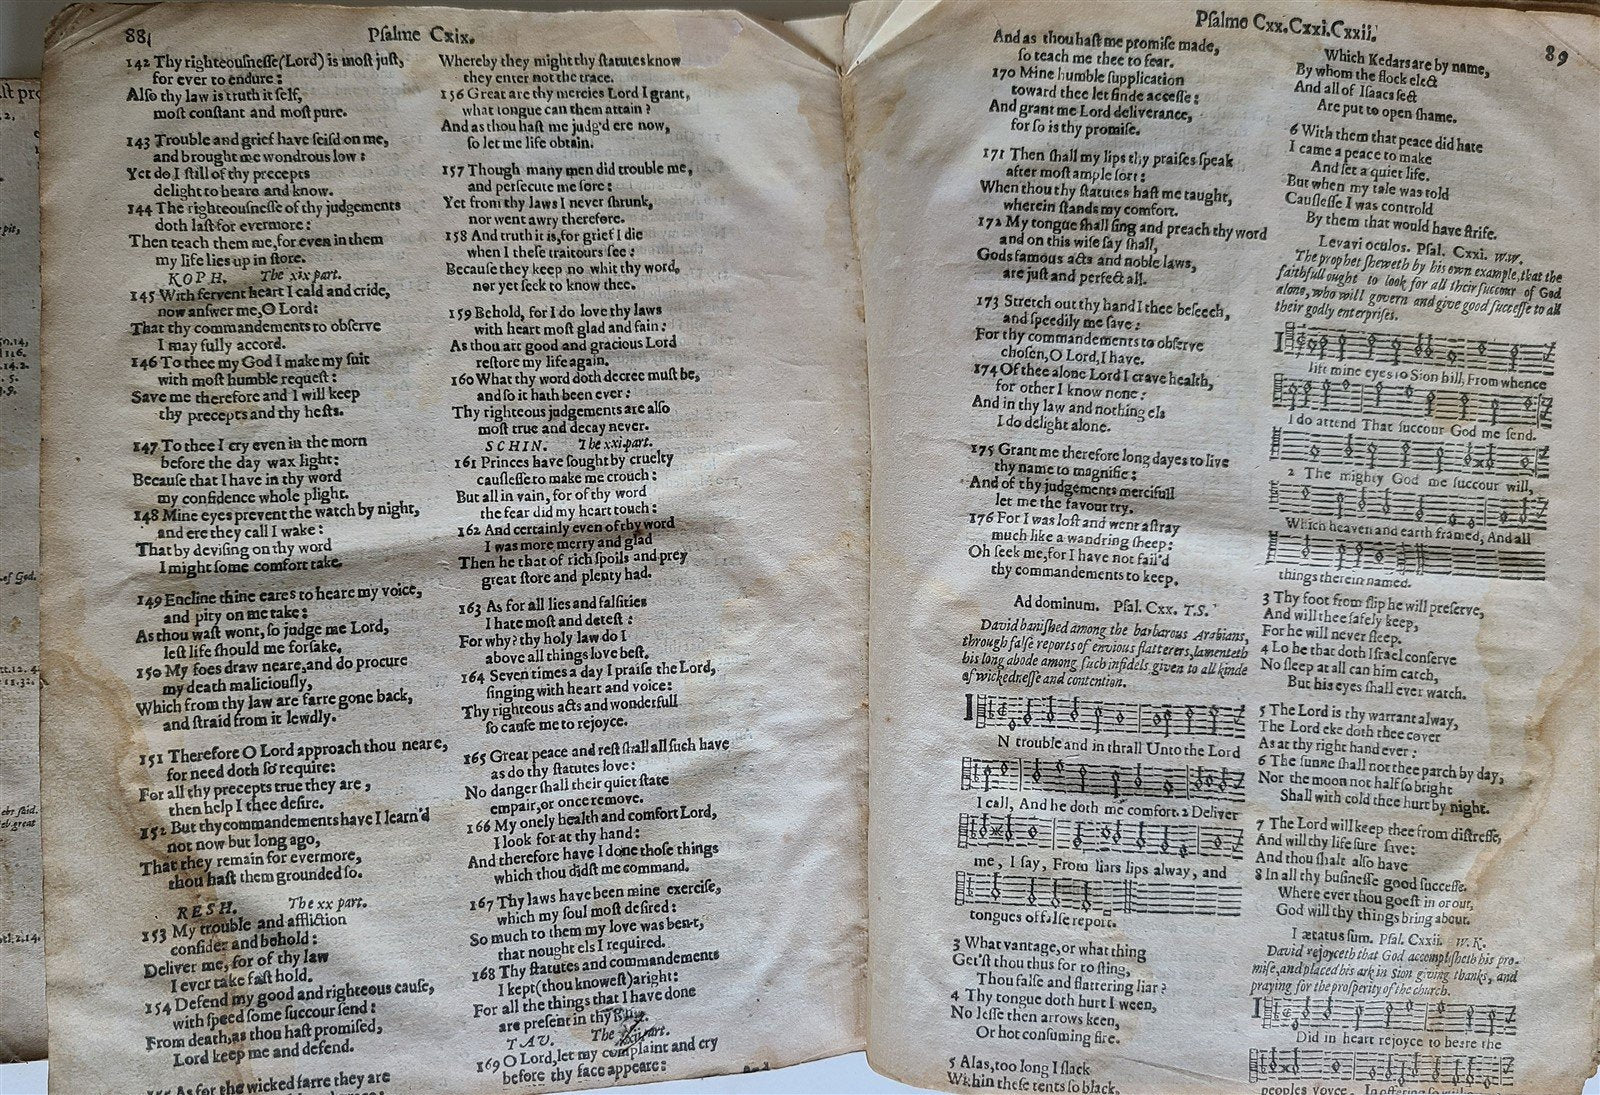 88
Psalme Cxix.
142 Thy righteousnesse(Lord) is most just,
for ever to endure:
Also thy law is truth it self,
most constant and most pure.
143 Trouble and grief have seisd on me,
and brought me wondrous low:
Yet do I still of thy precepts
delight to heare and know.
144 The righteousnesse of thy judgements
doth last for evermore:
Then teach them me, for even in them
my life lies up in store.
KOPH. The xix part.
145 With fervent heart I cald and cride,
now answer me, O Lord:
That thy commandements to observe
I may fully accord.
146 To thee my God I make my suit
with most humble request:
Save me therefore and I will keep
thy precepts and thy hests.
147 To thee I cry even in the morn
before the day wax light:
Because that I have in thy word
my confidence whole plight.
148 Mine eyes prevent the watch by night,
and ere they call I wake:
That by devising on thy word
I might some comfort take.
149 Encline thine eares to heare my voice,
and pity on me take:
As thou wast wont, so judge me Lord,
lest life should me forsake.
150 My foes draw neare, and do procure
my death maliciously,
Which from thy law are farre gone back,
and straid from it lewdly.
151 Therefore O Lord approach thou neare,
for need doth so require:
For all thy precepts true they are,
then help I thee desire.
152 But thy commandements have I learn'd
not now but long ago,
That they remain for evermore,
thou hast them grounded so.
RESH. The xx part.
153 My trouble and affliction
consider and behold:
Deliver me, for of thy law
I ever take fast hold.
154 Defend my good and righteous cause,
with speed some succour send:
From death, as thou hast promised,
Lord keep me and defend.
As for the wicked farre they are
Whereby they might thy statutes know
they enter not the trace.
156 Great are thy mercies Lord I grant,
what tongue can them attain?
And as thou hast me judg'd ere now,
so let me life obtain.
157 Though many men did trouble me,
and persecute me sore:
Yet from thy laws I never shrunk,
nor went awry therefore.
158 And truth it is, for grief I die
when I these traitours see:
Because they keep no whit thy word,
nor yet seek to know thee.
159 Behold, for I do love thy laws
with heart most glad and fain:
As thou art good and gracious Lord
restore my life again.
160 What thy word doth decree must be,
and so it hath been ever:
Thy righteous judgements are also
most true and decay never.
SCHIN. The xxi part.
161 Princes have sought by cruelty
causlesse to make me crouch:
But all in vain, for of thy word
the fear did my heart touch:
162 And certainly even of thy word
I was more merry and glad
Then he that of rich spoils and prey
great store and plenty had.
163 As for all lies and falsities
I hate most and detest:
For why? thy holy law do I
above all things love best.
164 Seven times a day I praise the Lord,
singing with heart and voice:
Thy righteous acts and wonderfull
so cause me to rejoyce.
165 Great peace and rest shall all such have
as do thy statutes love:
No danger shall their quiet state
empair, or once remove.
166 My onely health and comfort Lord,
I look for at thy hand:
And therefore have I done those things
which thou didst me command.
167 Thy laws have been mine exercise,
which my soul most desired:
So much to them my love was bent,
that nought els I required.
168 Thy statutes and commandements
I kept (thou knowest) aright:
For all the things that I have done
are present in thy
TAU. The part.
169 O Lord, let my complaint and cry
before thy face appeare:
Psalme Cxx. Cxxi. Cxxii.
89
And as thou hast me promise made,
so teach me thee to fear.
170 Mine humble supplication
toward thee let finde accesse:
And grant me Lord deliverance,
for so is thy promise.
171 Then shall my lips thy praises speak
after most ample sort:
When thou thy statutes hast me taught,
wherein stands my comfort.
172 My tongue shall sing and preach thy word
and on this wise say shall,
Gods famous acts and noble laws,
are just and perfect all.
173 Stretch out thy hand I thee beseech,
and speedily me save:
For thy commandements to observe
chosen, O Lord, I have.
174 Of thee alone Lord I crave health,
for other I know none:
And in thy law and nothing els
I do delight alone.
175 Grant me therefore long dayes to live
thy name to magnifie:
And of thy judgements mercifull
let me the favour try.
176 For I was lost and went astray
much like a wandring sheep:
Oh seek me, for I have not fail'd
thy commandements to keep.
Ad dominum. Psal. Cxx. T.S.
David banished among the barbarous Arabians,
through false reports of envious flatterers, lamenteth
his long abode among such infidels given to all kinde
of wickednesse and contention.
IN trouble and in thrall Unto the Lord
I call, And he doth me comfort. 2 Deliver
me, I say, From liars lips alway, and
tongues of false report.
3 What vantage, or what thing
Get'st thou thus for to sting,
Thou false and flattering liar?
4 Thy tongue doth hurt I ween,
No lesse then arrows keen,
Or hot consuming fire.
5 Alas, too long I slack
Within these tents so black,
Which Kedars are by name,
By whom the flock elect
And all of Isaacs sect
Are put to open shame.
6 With them that peace did hate
I came a peace to make
And set a quiet life.
But when my tale was told
Causlesse I was controld
By them that would have strife.
Levavi oculos. Psal. Cxxi. W.W.
The prophet sheweth by his own example, that the
faithfull ought to look for all their succour of God
alone, who will govern and give good successe to all
their godly enterprises.
I lift mine eyes to Sion hill, From whence
I do attend That succour God me send.
2 The mighty God me succour will,
Which heaven and earth framed, And all
things therein named.
3 Thy foot from slip he will preserve,
And will thee safely keep,
For he will never sleep.
4 Lo he that doth Israel conserve
No sleep at all can him catch,
But his eyes shall ever watch.
5 The Lord is thy warrant alway,
The Lord eke doth thee cover
As at thy right hand ever:
6 The sunne shall not thee parch by day,
Nor the moon not half so bright
Shall with cold thee hurt by night.
7 The Lord will keep thee from distresse,
And will thy life sure save:
And thou shalt also have
8 In all thy businesse good successe.
Where ever thou goest in or out,
God will thy things bring about.
Lætatus sum. Psal. Cxxii. W.K.
David rejoyceth that God accomplisheth his pro-
mise, and placed his ark in Sion giving thanks, and
praying for the prosperity of the church.
I Did in heart rejoyce to heare the
peoples voyce, In offering so